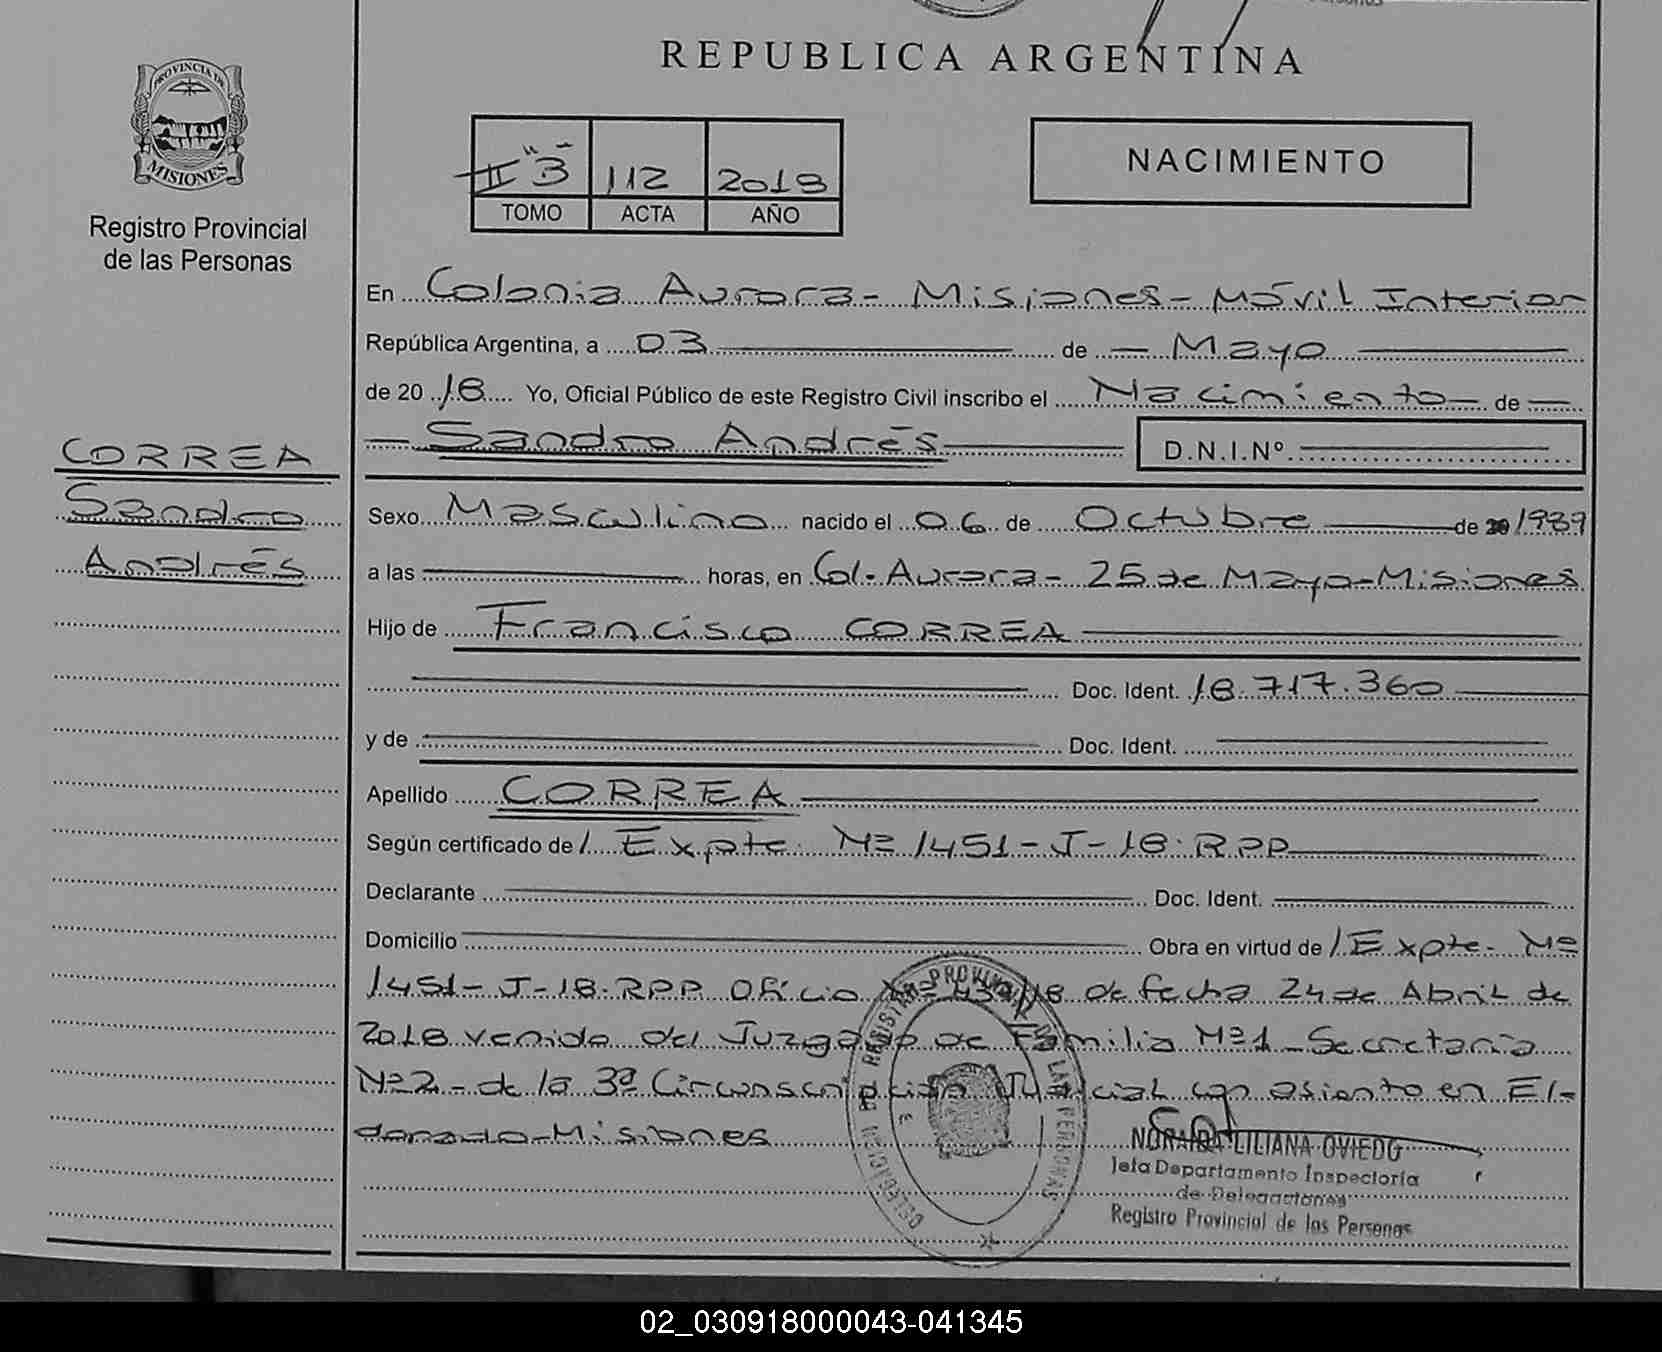 REPUBLICA ARGENTINA
PROVINCIA DE
MISIONES
Registro Provincial
de las Personas
II "B" 112 2018
TOMO ACTA AÑO
NACIMIENTO
En Colonia Aurora - Misiones - Móvil Interior
República Argentina, a 03 de Mayo
de 20 18 Yo, Oficial Público de este Registro Civil inscribo el Nacimiento de
Sandro Andrés D.N.I.Nº
CORREA
Sandro
Andrés
Sexo Masculino nacido el 06 de Octubre de 20/1989
a las horas, en Col. Aurora - 25 de Mayo - Misiones
Hijo de Francisco CORREA
Doc. Ident. 18.717.360
y de Doc. Ident.
Apellido CORREA
Según certificado de / Expte. Nº 1451-J-18. RPP
Declarante Doc. Ident.
Domicilio Obra en virtud de / Expte. Nº
1451-J-18. RPP Oficio Nº /18 de fecha 24 de Abril de
2018 venido del Juzgado de Familia Nº 1 - Secretaria
Nº 2 - de la 3ª Circunscripción Judicial con asiento en El-
dorado - Misiones
NORAIDA LILIANA OVIEDO
Jefa Departamento Inspectoria
de Delegaciones
Registro Provincial de las Personas
02_030918000043-041345